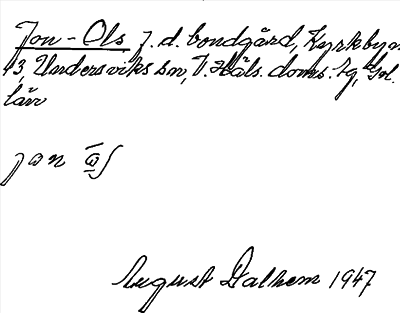 Jon-Ols f. d. bondgård, Kyrkbyn
13, Undersviks sn, V. Häls. doms. tg, Gvl.
län
jan ω̄ʃ
August Dalhem 1947